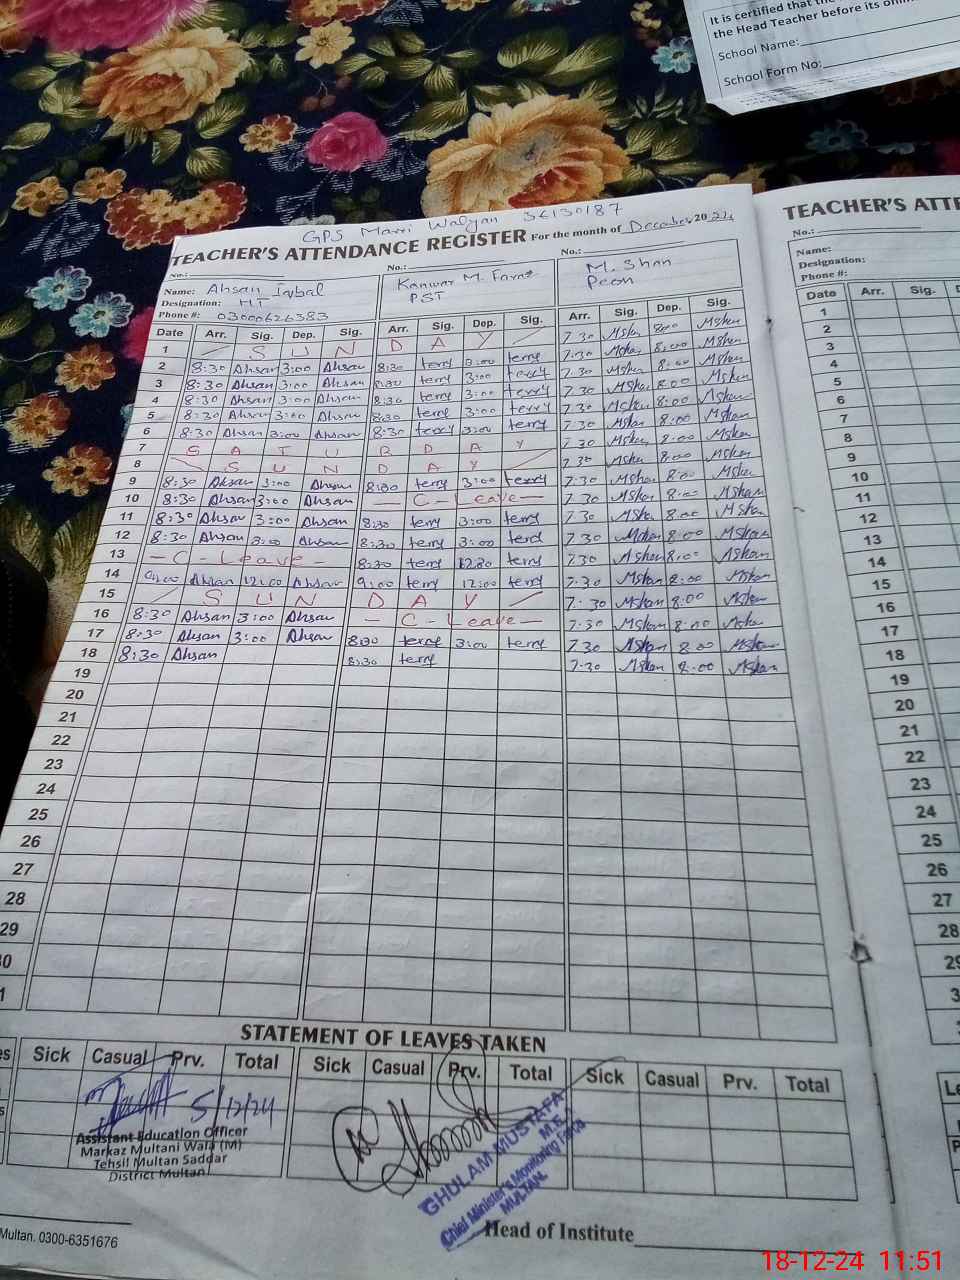 It is certified that the
the Head Teacher before its onlin
School Name:
School Form No:
GPS Marri Walyan 36130187
TEACHER'S ATTENDANCE REGISTER For the month of December 2024
No.: No.: No.:
Name: Ahsan Iqbal Kanwar M. Faraz M. Shan
Designation: HT PST Peon
Phone #: 03000626383
Date Arr. Sig. Dep. Sig. Arr. Sig. Dep. Sig. Arr. Sig. Dep. Sig.
1 S U N D A Y 7.30 Mshan 8:00 Mshan
2 8:30 Ahsan 3:00 Ahsan 8:30 terry 3:00 terry 7.30 Mshan 8:00 Mshan
3 8:30 Ahsan 3:00 Ahsan 8:30 terry 3:00 terry 7.30 Mshan 8:00 Mshan
4 8:30 Ahsan 3:00 Ahsan 8:30 terry 3:00 terry 7.30 Mshan 8:00 Mshan
5 8:30 Ahsan 3:00 Ahsan 8:30 terry 3:00 terry 7.30 Mshan 8:00 Mshan
6 8:30 Ahsan 3:00 Ahsan 8:30 terry 3:00 terry 7.30 Mshan 8:00 Mshan
7 S A T U R D A Y 7.30 Mshan 8:00 Mshan
8 S U N D A Y 7.30 Mshan 8:00 Mshan
9 8:30 Ahsan 3:00 Ahsan 8:30 terry 3:00 terry 7.30 Mshan 8:00 Mshan
10 8:30 Ahsan 3:00 Ahsan — C - Leave — 7.30 Mshan 8:00 Mshan
11 8:30 Ahsan 3:00 Ahsan 8:30 terry 3:00 terry 7.30 Mshan 8:00 Mshan
12 8:30 Ahsan 3:00 Ahsan 8:30 terry 3:00 terry 7.30 Mshan 8:00 Mshan
13 — C - Leave - 8:30 terry 12:30 terry 7.30 Mshan 8:00 Mshan
14 9:00 Ahsan 12:00 Ahsan 9:00 terry 12:00 terry 7.30 Mshan 8:00 Mshan
15 S U N D A Y 7.30 Mshan 8:00 Mshan
16 8:30 Ahsan 3:00 Ahsan — C - Leave — 7.30 Mshan 8:00 Mshan
17 8:30 Ahsan 3:00 Ahsan 8:30 terry 3:00 terry 7.30 Mshan 8:00 Mshan
18 8:30 Ahsan 8:30 terry 7.30 Mshan 8:00 Mshan
19
20
21
22
23
24
25
26
27
28
29
0
1
STATEMENT OF LEAVES TAKEN
es Sick Casual Prv. Total Sick Casual Prv. Total Sick Casual Prv. Total
5/12/24
Assistant Education Officer
Markaz Multani Wala (M)
Tehsil Multan Saddar
District Multan
GHULAM MUSTAFA
M.E.A
Chief Minister's Monitoring Force
MULTAN.
Head of Institute
Multan. 0300-6351676
TEACHER'S ATTE
No.:
Name:
Designation:
Phone #:
Date Arr. Sig. D
1
2
3
4
5
6
7
8
9
10
11
12
13
14
15
16
17
18
19
20
21
22
23
24
25
26
27
28
29
3
Le
18-12-24 11:51